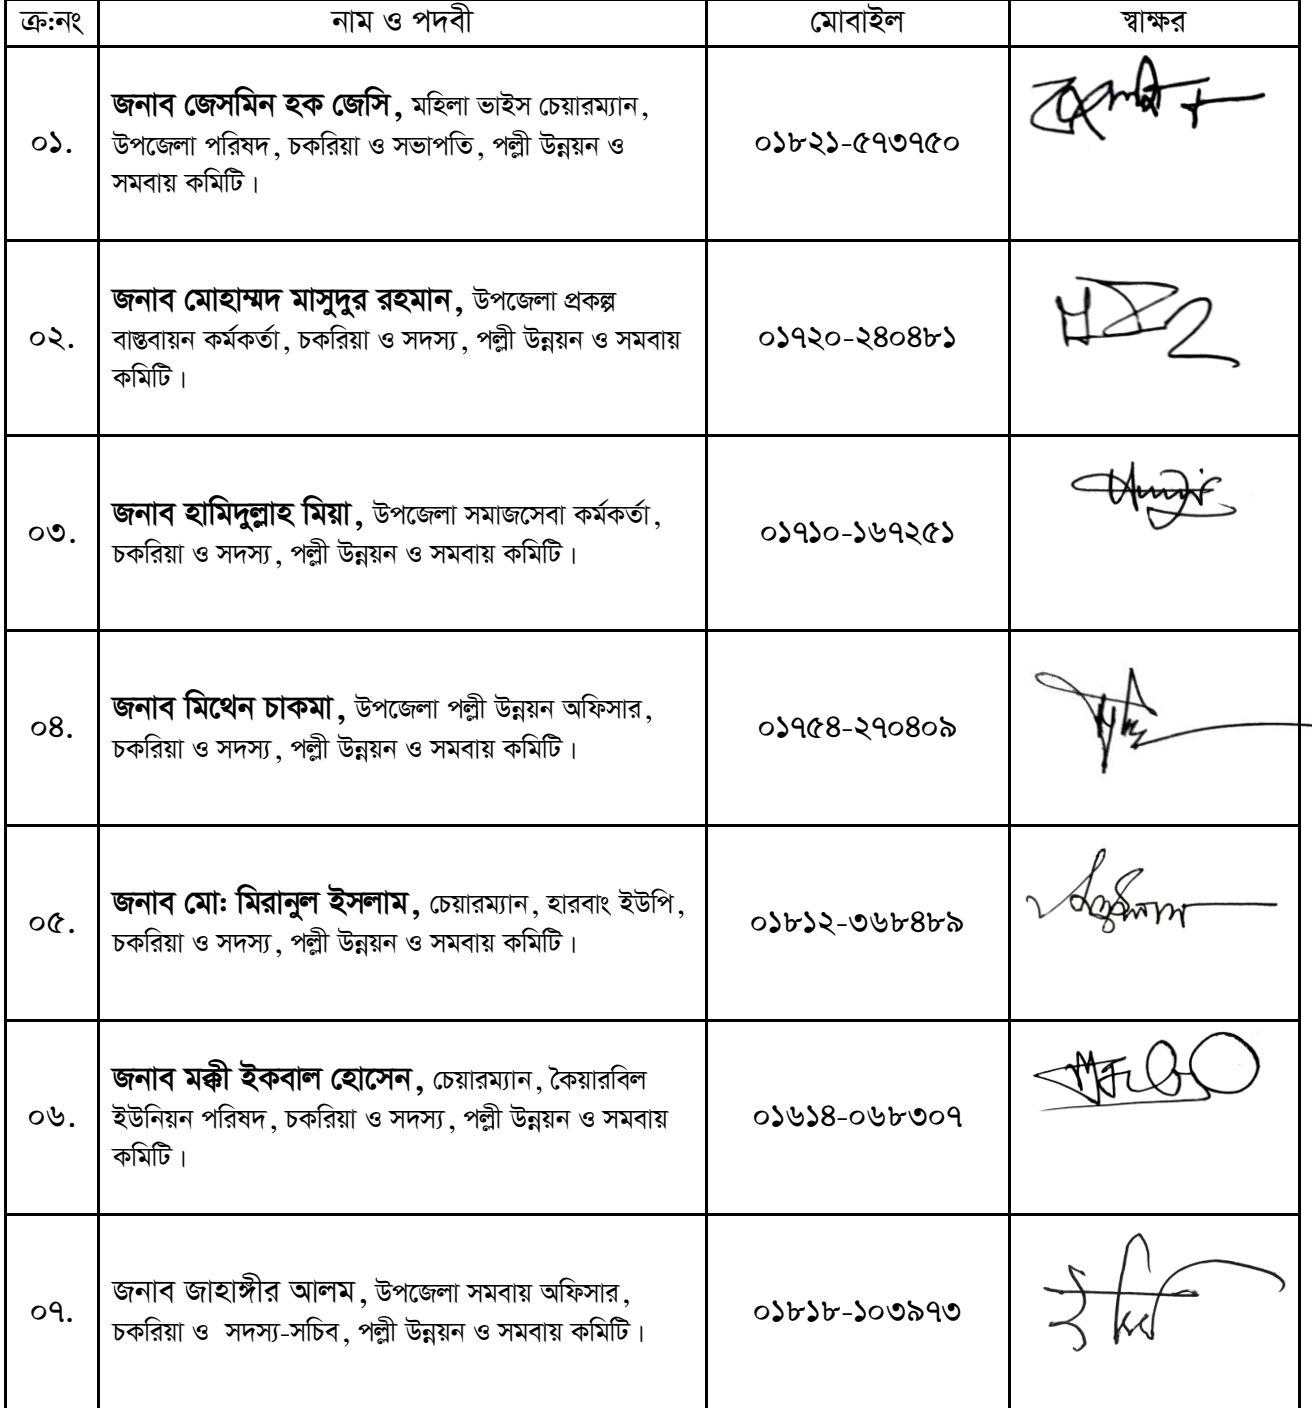 ক্র:নং নাম ও পদবী মোবাইল স্বাক্ষর
জনাব জেসমিন হক জেসি, মহিলা ভাইস চেয়ারম্যান,
০১. উপজেলা পরিষদ, চকরিয়া ও সভাপতি, পল্লী উন্নয়ন ও ০১৮২১-৫৭৩৭৫০
সমবায় কমিটি।
জনাব মোহাম্মদ মাসুদুর রহমান, উপজেলা প্রকল্প
০২. বাস্তবায়ন কর্মকর্তা, চকরিয়া ও সদস্য, পল্লী উন্নয়ন ও সমবায় ০১৭২০-২৪০৪৮১
কমিটি।
জনাব হামিদুল্লাহ মিয়া, উপজেলা সমাজসেবা কর্মকর্তা,
০৩. চকরিয়া ও সদস্য, পল্লী উন্নয়ন ও সমবায় কমিটি। ০১৭১০-১৬৭২৫১
জনাব মিথেন চাকমা, উপজেলা পল্লী উন্নয়ন অফিসার,
০৪. চকরিয়া ও সদস্য, পল্লী উন্নয়ন ও সমবায় কমিটি। ০১৭৫৪-২৭০৪০৯
জনাব মো: মিরানুল ইসলাম, চেয়ারম্যান, হারবাং ইউপি,
০৫. চকরিয়া ও সদস্য, পল্লী উন্নয়ন ও সমবায় কমিটি। ০১৮১২-৩৬৮৪৮৯
জনাব মক্কী ইকবাল হোসেন, চেয়ারম্যান, কৈয়ারবিল
০৬. ইউনিয়ন পরিষদ, চকরিয়া ও সদস্য, পল্লী উন্নয়ন ও সমবায় ০১৬১৪-০৬৮৩০৭
কমিটি।
জনাব জাহাঙ্গীর আলম, উপজেলা সমবায় অফিসার,
০৭. চকরিয়া ও সদস্য-সচিব, পল্লী উন্নয়ন ও সমবায় কমিটি। ০১৮১৮-১০৩৯৭৩